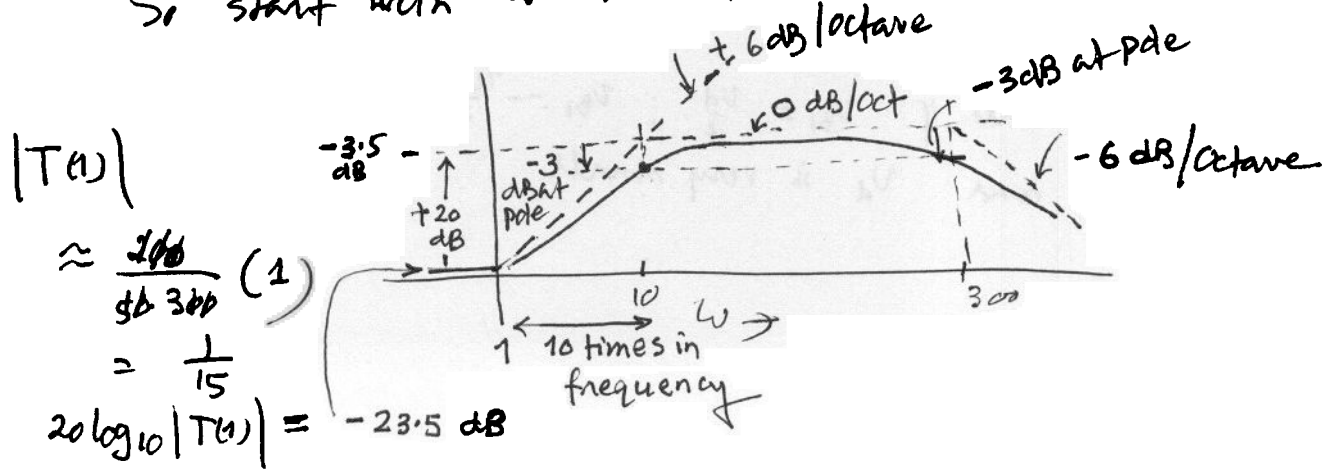 So start with
+ 6 dB/octave
-3dB at pole
0 dB/oct
-6 dB/octave
-3.5 dB
-3 dB at pole
+20 dB
|T(1)|
≈ 200 / 10 · 300 (1)
= 1/15
20 log10 |T(1)| = -23.5 dB
1
10
ω →
300
10 times in
frequency